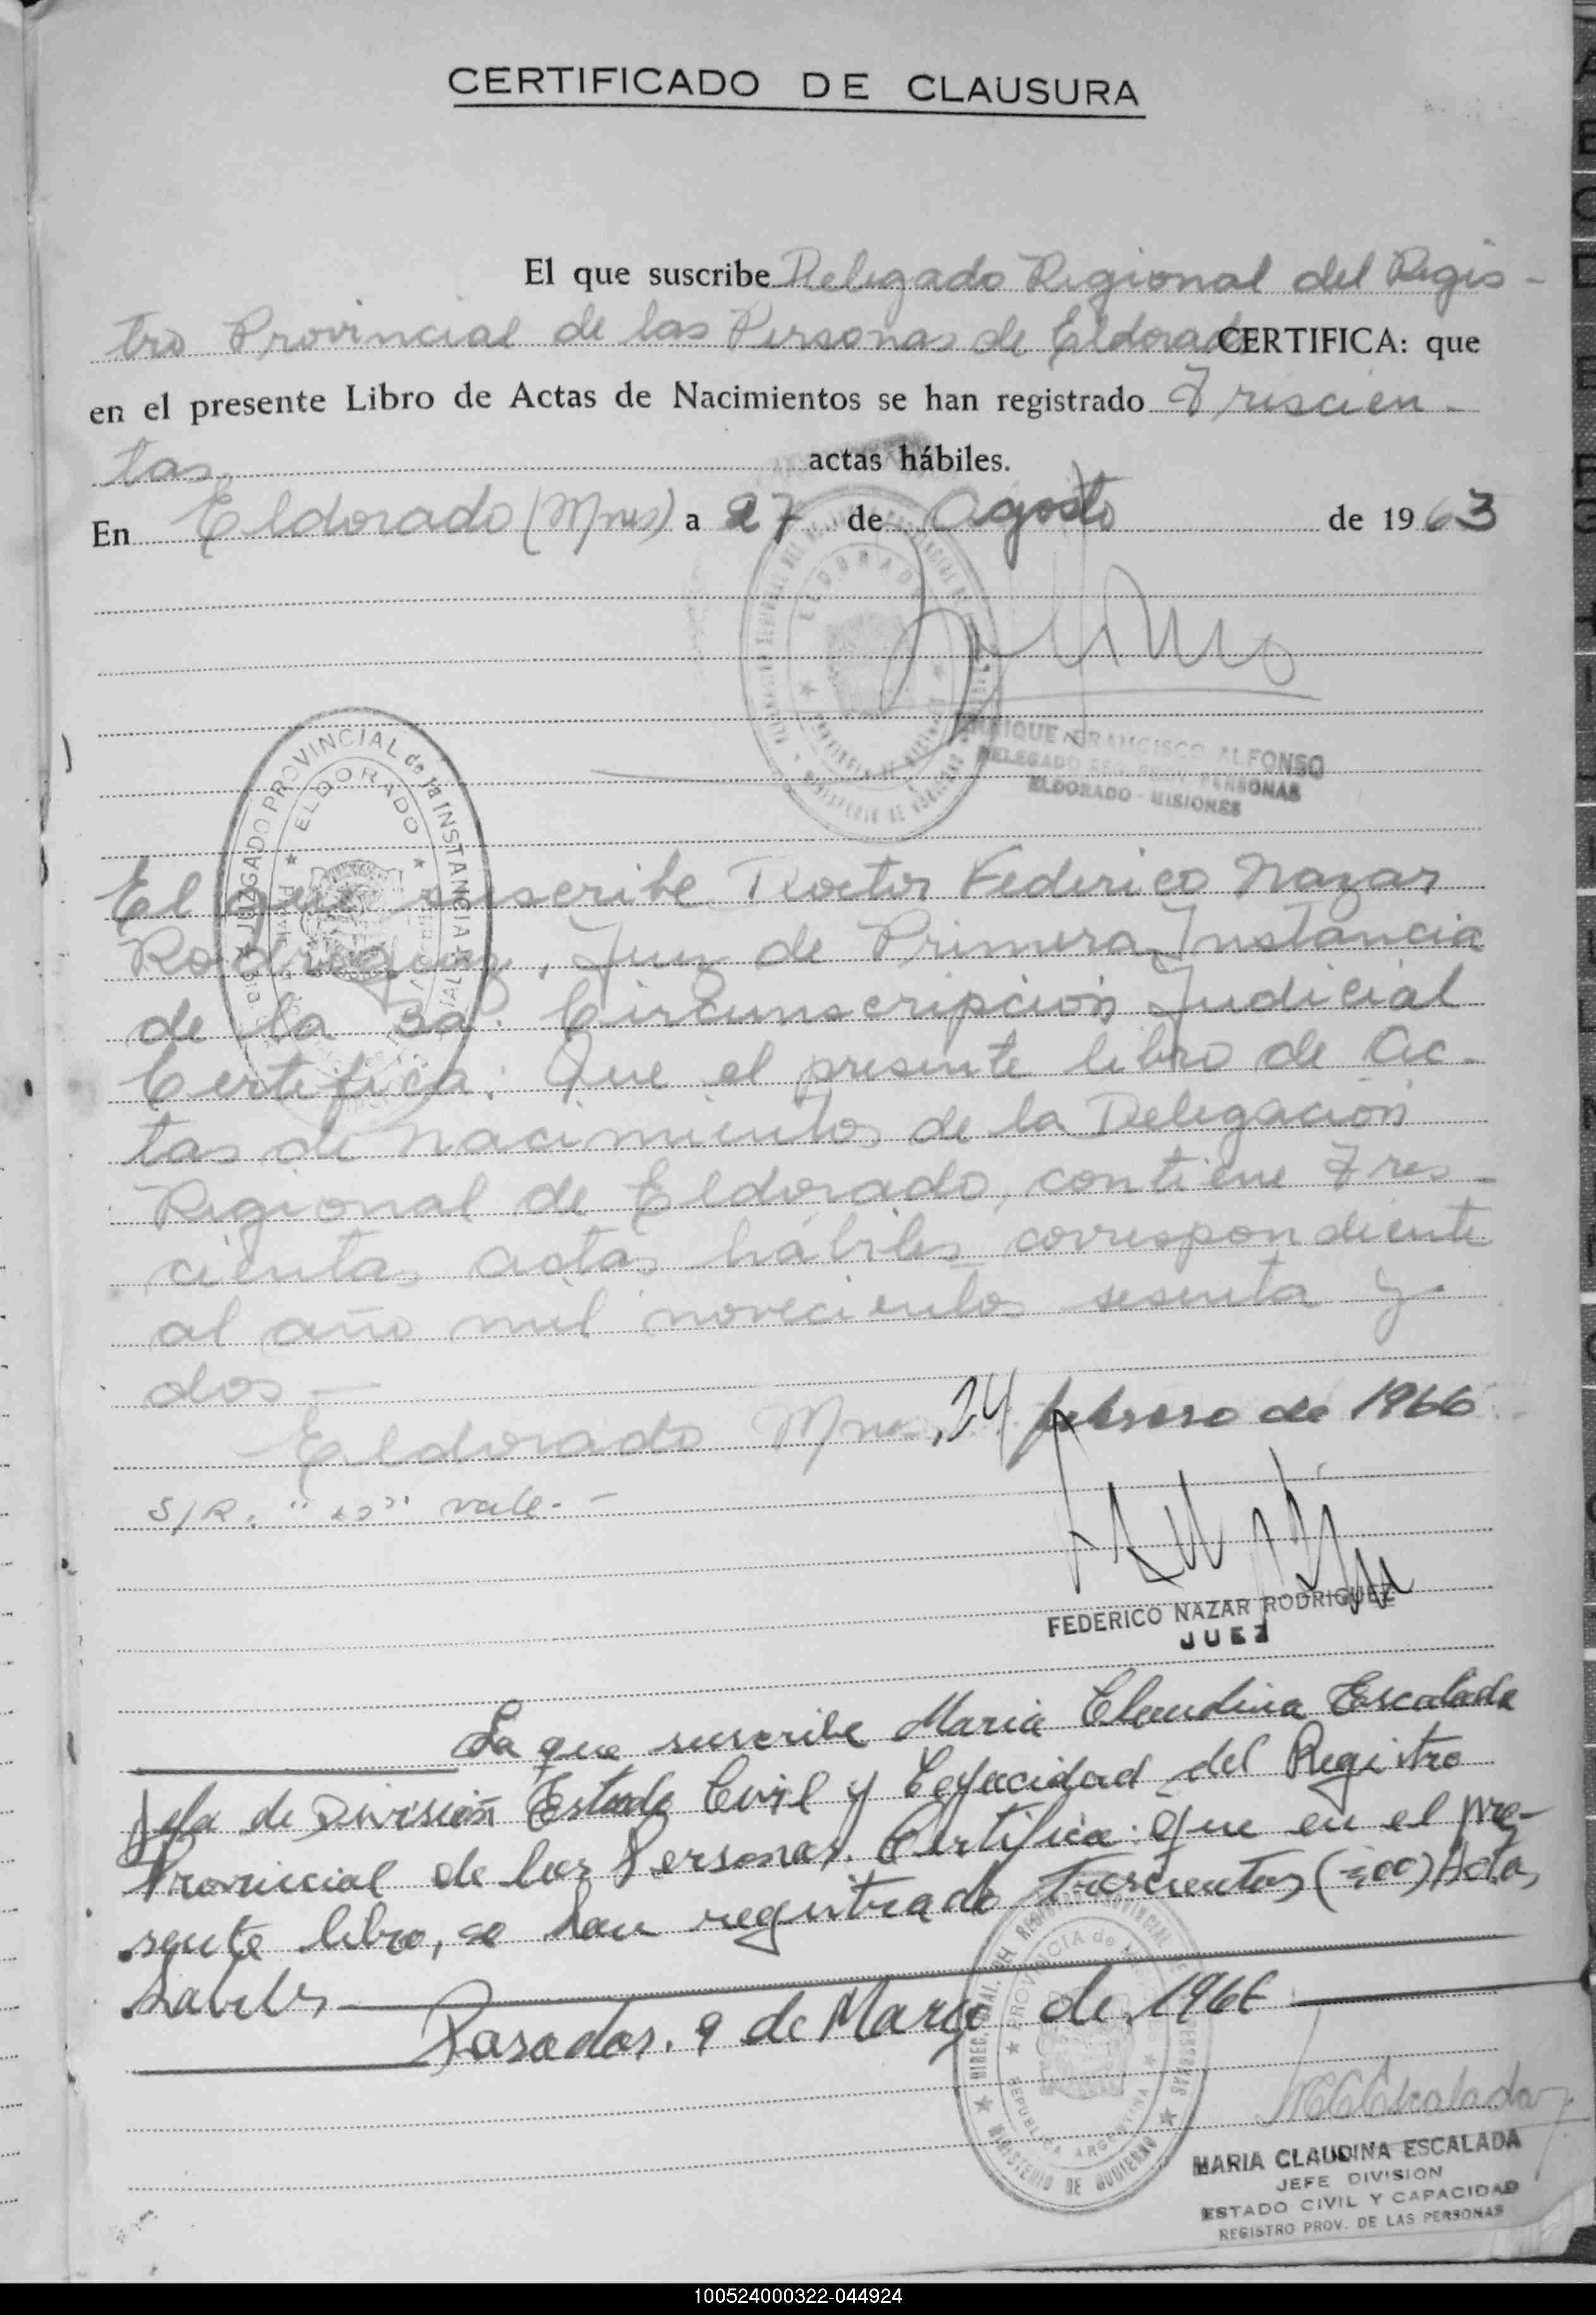 CERTIFICADO DE CLAUSURA
El que suscribe Delegado Regional del Regis-
tro Provincial de las Personas de Eldorado CERTIFICA: que
en el presente Libro de Actas de Nacimientos se han registrado Trescien-
tas actas hábiles.
En Eldorado (Mnes) a 27 de agosto de 1963
ELDORADO
ENRIQUE FRANCISCO ALFONSO
DELEGADO REG. PROV. PERSONAS
ELDORADO - MISIONES
JUZGADO PROVINCIAL de 1ª INSTANCIA
ELDORADO
El que suscribe Doctor Federico Nazar
Rodriguez, Juez de Primera Instancia
de la 3a. Circunscripción Judicial
Certifica: Que el presente libro de Ac-
tas de nacimientos de la Delegación
Regional de Eldorado, contiene Tres-
cientas actas hábiles correspondiente
al año mil novecientos sesenta y
dos —
Eldorado Mnes, 24 febrero de 1966
S/R. vale. —
FEDERICO NAZAR RODRIGUEZ
JUEZ
La que suscribe Maria Claudina Escalada
Jefa de División Estado Civil y Capacidad del Registro
Provincial de las Personas. Certifica: que en el pre-
sente libro, se han registrado Trescientas (300) Actas
habiles
Posadas, 9 de Marzo de 1966
DIREC. GRAL. DEL REGISTRO PROVINCIAL DE LAS PERSONAS
PROVINCIA de MISIONES
REPUBLICA ARGENTINA
MINISTERIO DE GOBIERNO
MCEscalada
MARIA CLAUDINA ESCALADA
JEFE DIVISION
ESTADO CIVIL Y CAPACIDAD
REGISTRO PROV. DE LAS PERSONAS
100524000322-044924